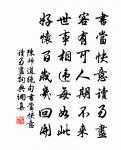 書當快意讀易盡
客有可人期不來
世事相違每如此
好懷百歲幾回開
陳師道絕句書當快意
讀易盡詞典網集